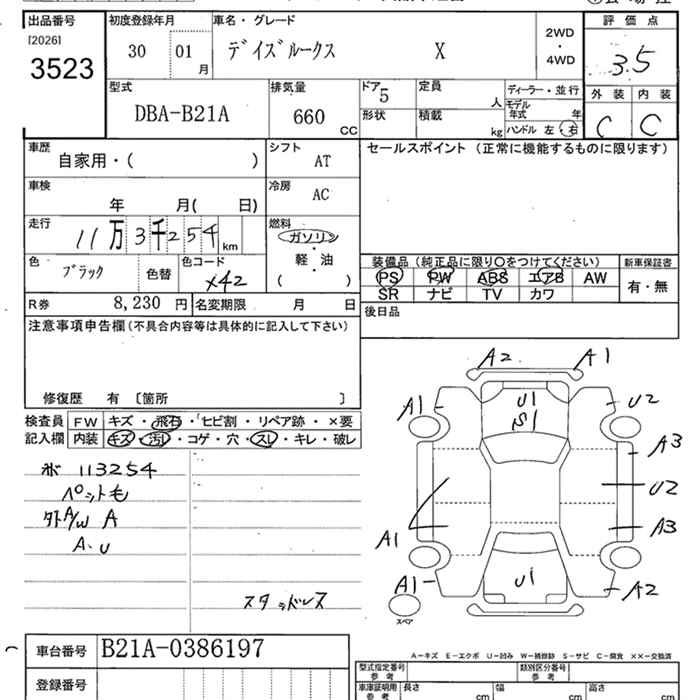 出品番号 初度登録年月 車名・グレード 評価点
[2026] 3523 30 01月 デイズルークス X 2WD・4WD 3.5
外装 内装
C C
型式 排気量 ドア 定員 ディーラー・並行
DBA-B21A 660 CC 5 人 モデル年式 年
形状 積載 kg ハンドル 左・右
車歴 シフト セールスポイント(正常に機能するものに限ります)
自家用・( ) AT
車検 冷房
年 月( 日) AC
走行 燃料
11万3千254 km ガソリン
軽・油
( )
色 色替 色コード
ブラック X42
装備品(純正品に限り〇をつけてください) 新車保証書
PS PW ABS エアB AW 有・無
SR ナビ TV カワ
R券 8,230 円 名変期限 月 日
後日品
注意事項申告欄(不具合内容等は具体的に記入して下さい)
修復歴 有 〔箇所 〕
検査員 FW キズ・飛石・ヒビ割・リペア跡・×要
記入欄 内装 キズ・汚レ・コゲ・穴・スレ・キレ・破レ
113254
ペット毛
外A/W A
A・U
スタッドレス
A2 A1
A1 U1 U2
S1
A3
U2
A1 A3
A1 U1 A2
スペア
A-キズ E-エクボ U-凹み W-補修跡 S-サビ C-腐食 ××-交換済
車台番号 B21A-0386197
型式指定番号 参考 類別区分番号 参考
登録番号 車庫証明用 参考 長さ cm 幅 cm 高さ cm